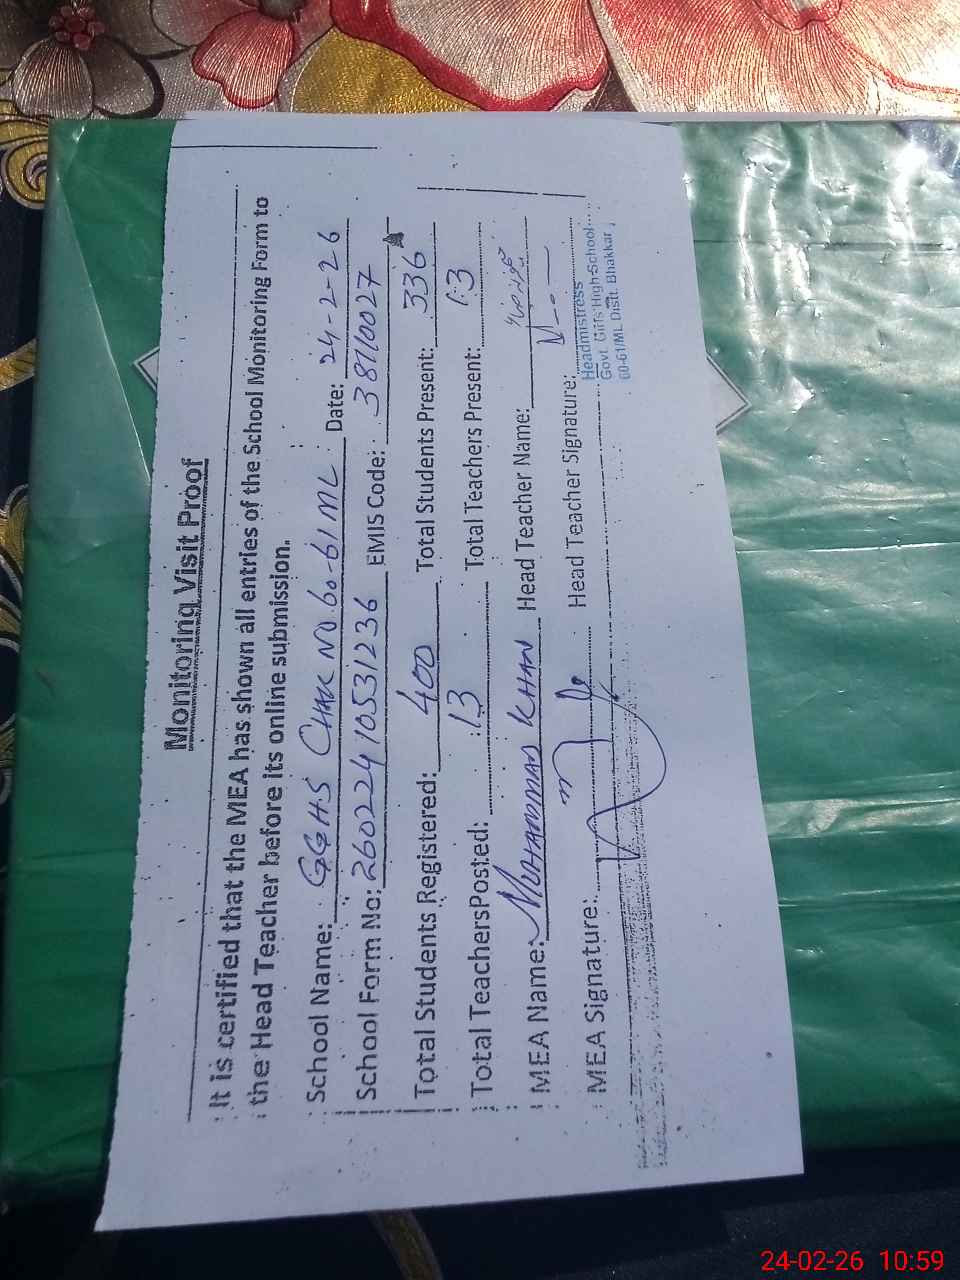 Monitoring Visit Proof
It is certified that the MEA has shown all entries of the School Monitoring Form to
the Head Teacher before its online submission.
School Name: GGHS CHAK NO. 60-61 ML Date: 24-2-26
School Form No: 2602241053 1236 EMIS Code: 38110027
Total Students Registered: 400 Total Students Present: 336
Total TeachersPosted: 13 Total Teachers Present: 13
MEA Name: MUHAMMAD KHAN Head Teacher Name:
MEA Signature: Head Teacher Signature:
Headmistress
Govt. Girls High School
60-61/ML Distt. Bhakkar
24-02-26 10:59